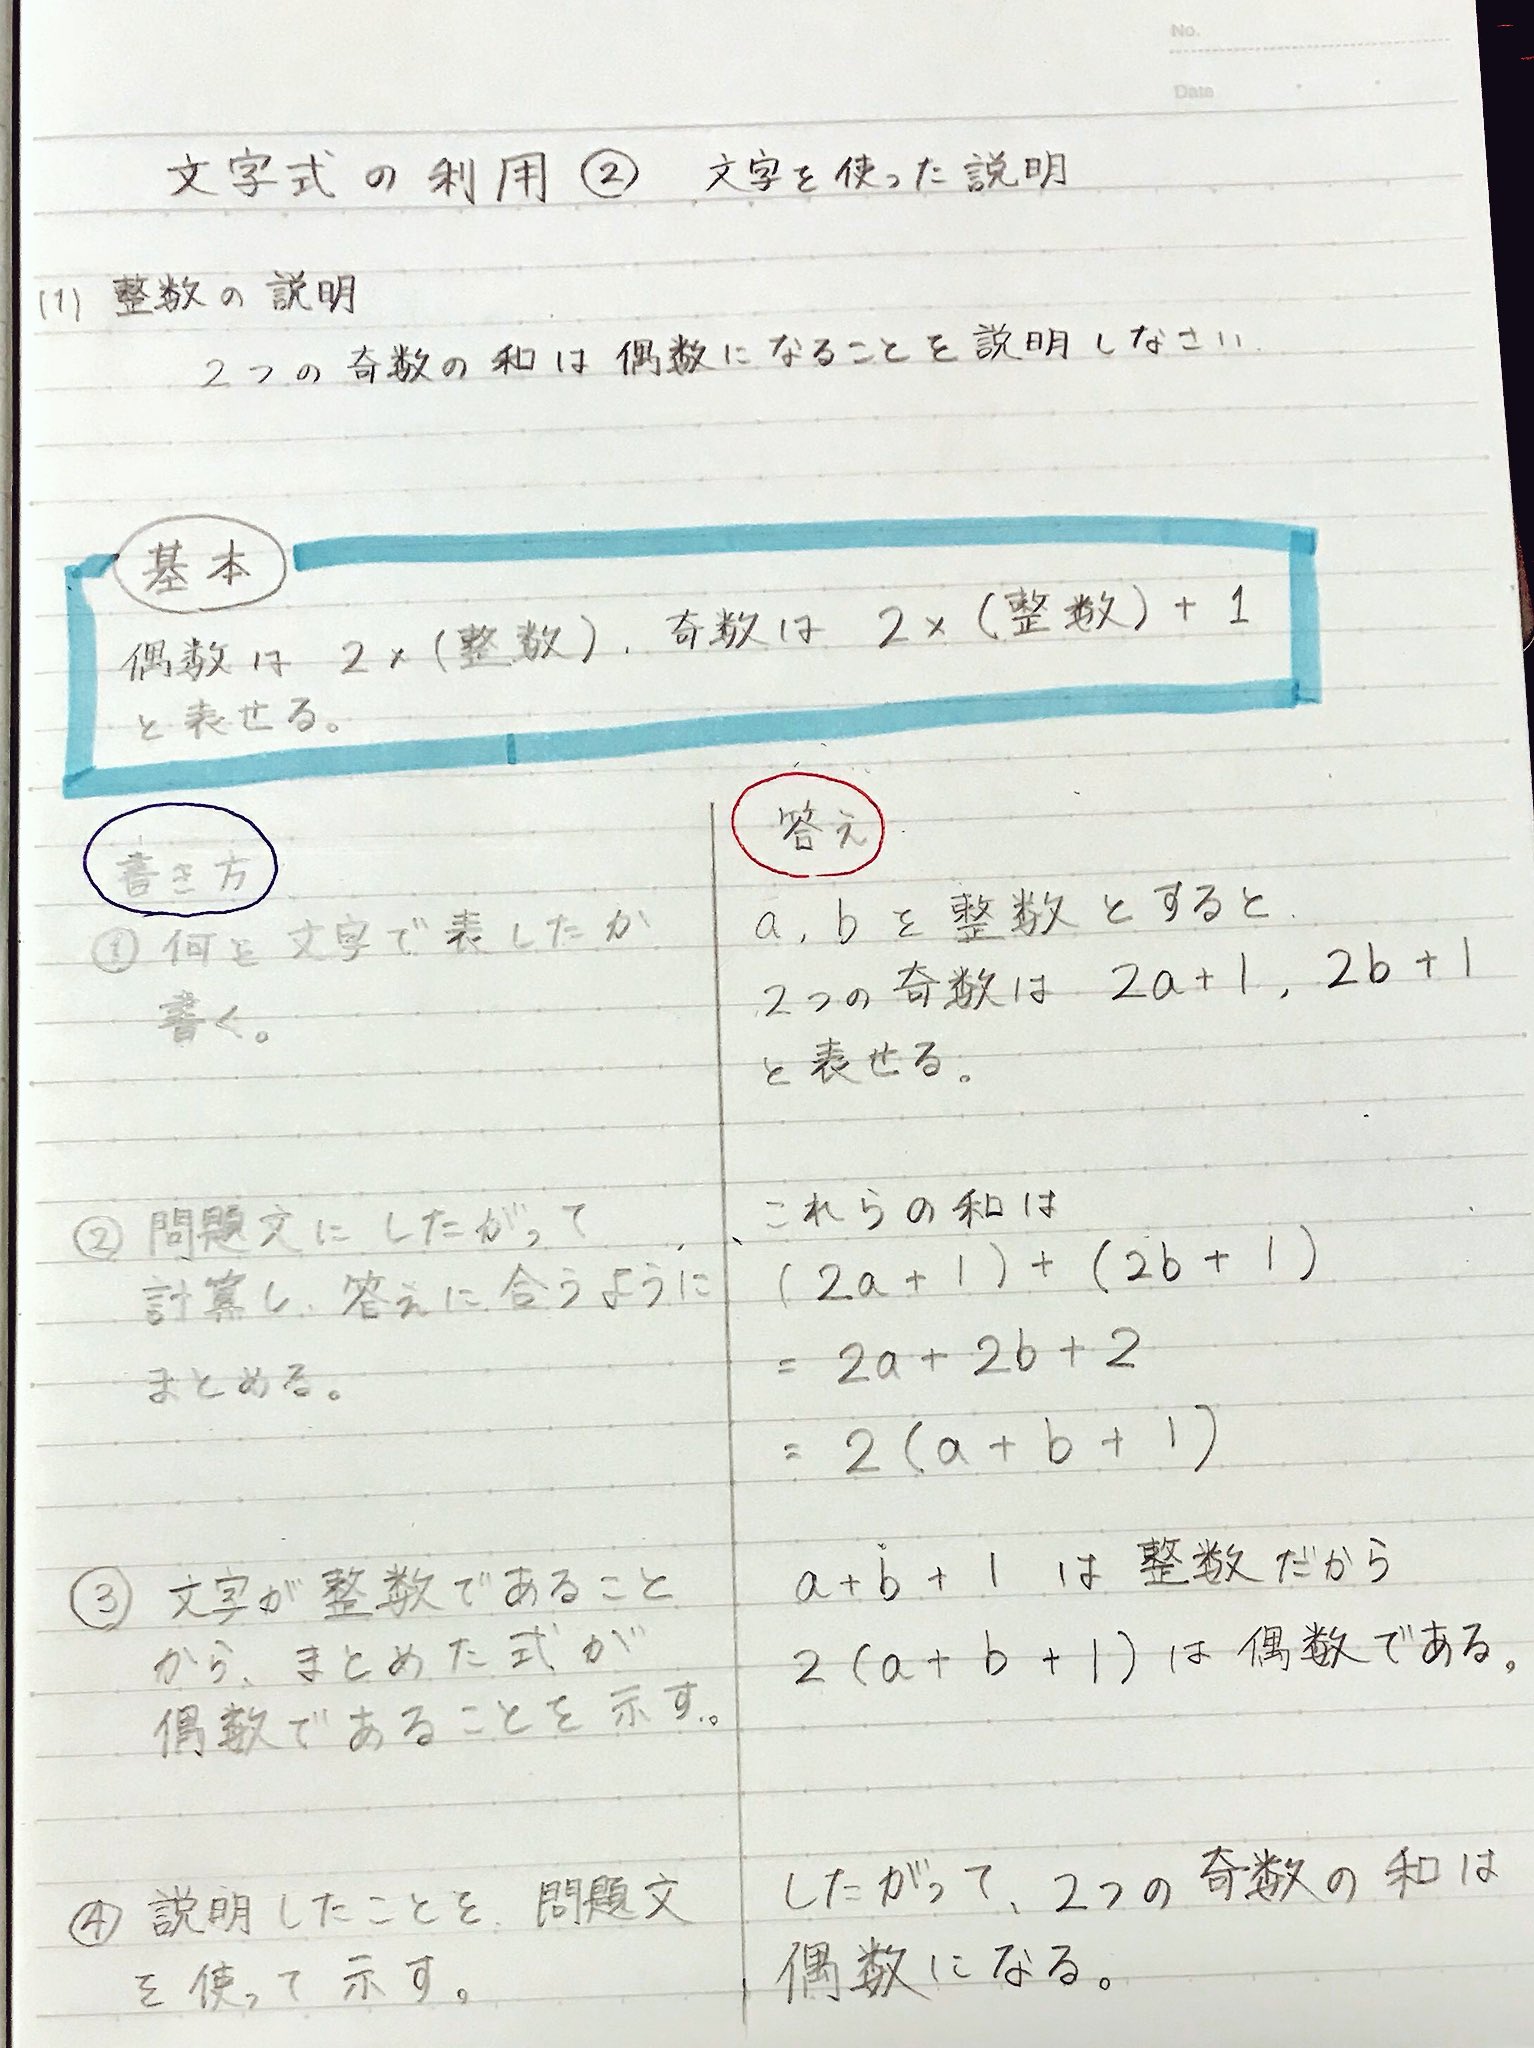 No.
Date
文字式の利用② 文字を使った説明
(1) 整数の説明
2つの奇数の和は偶数になることを説明しなさい.
基本
偶数は 2×(整数), 奇数は 2×(整数)+1
と表せる。
書き方
①何を文字で表したか
書く。
②問題文にしたがって
計算し、答えに合うように
まとめる。
③文字が整数であること
から、まとめた式が
偶数であることを示す。
④説明したことを、問題文
を使って示す。
答え
a, bを整数とすると、
2つの奇数は 2a+1, 2b+1
と表せる。
これらの和は
(2a+1)+(2b+1)
= 2a+2b+2
= 2(a+b+1)
a+b+1 は整数だから
2(a+b+1)は偶数である。
したがって、2つの奇数の和は
偶数になる。